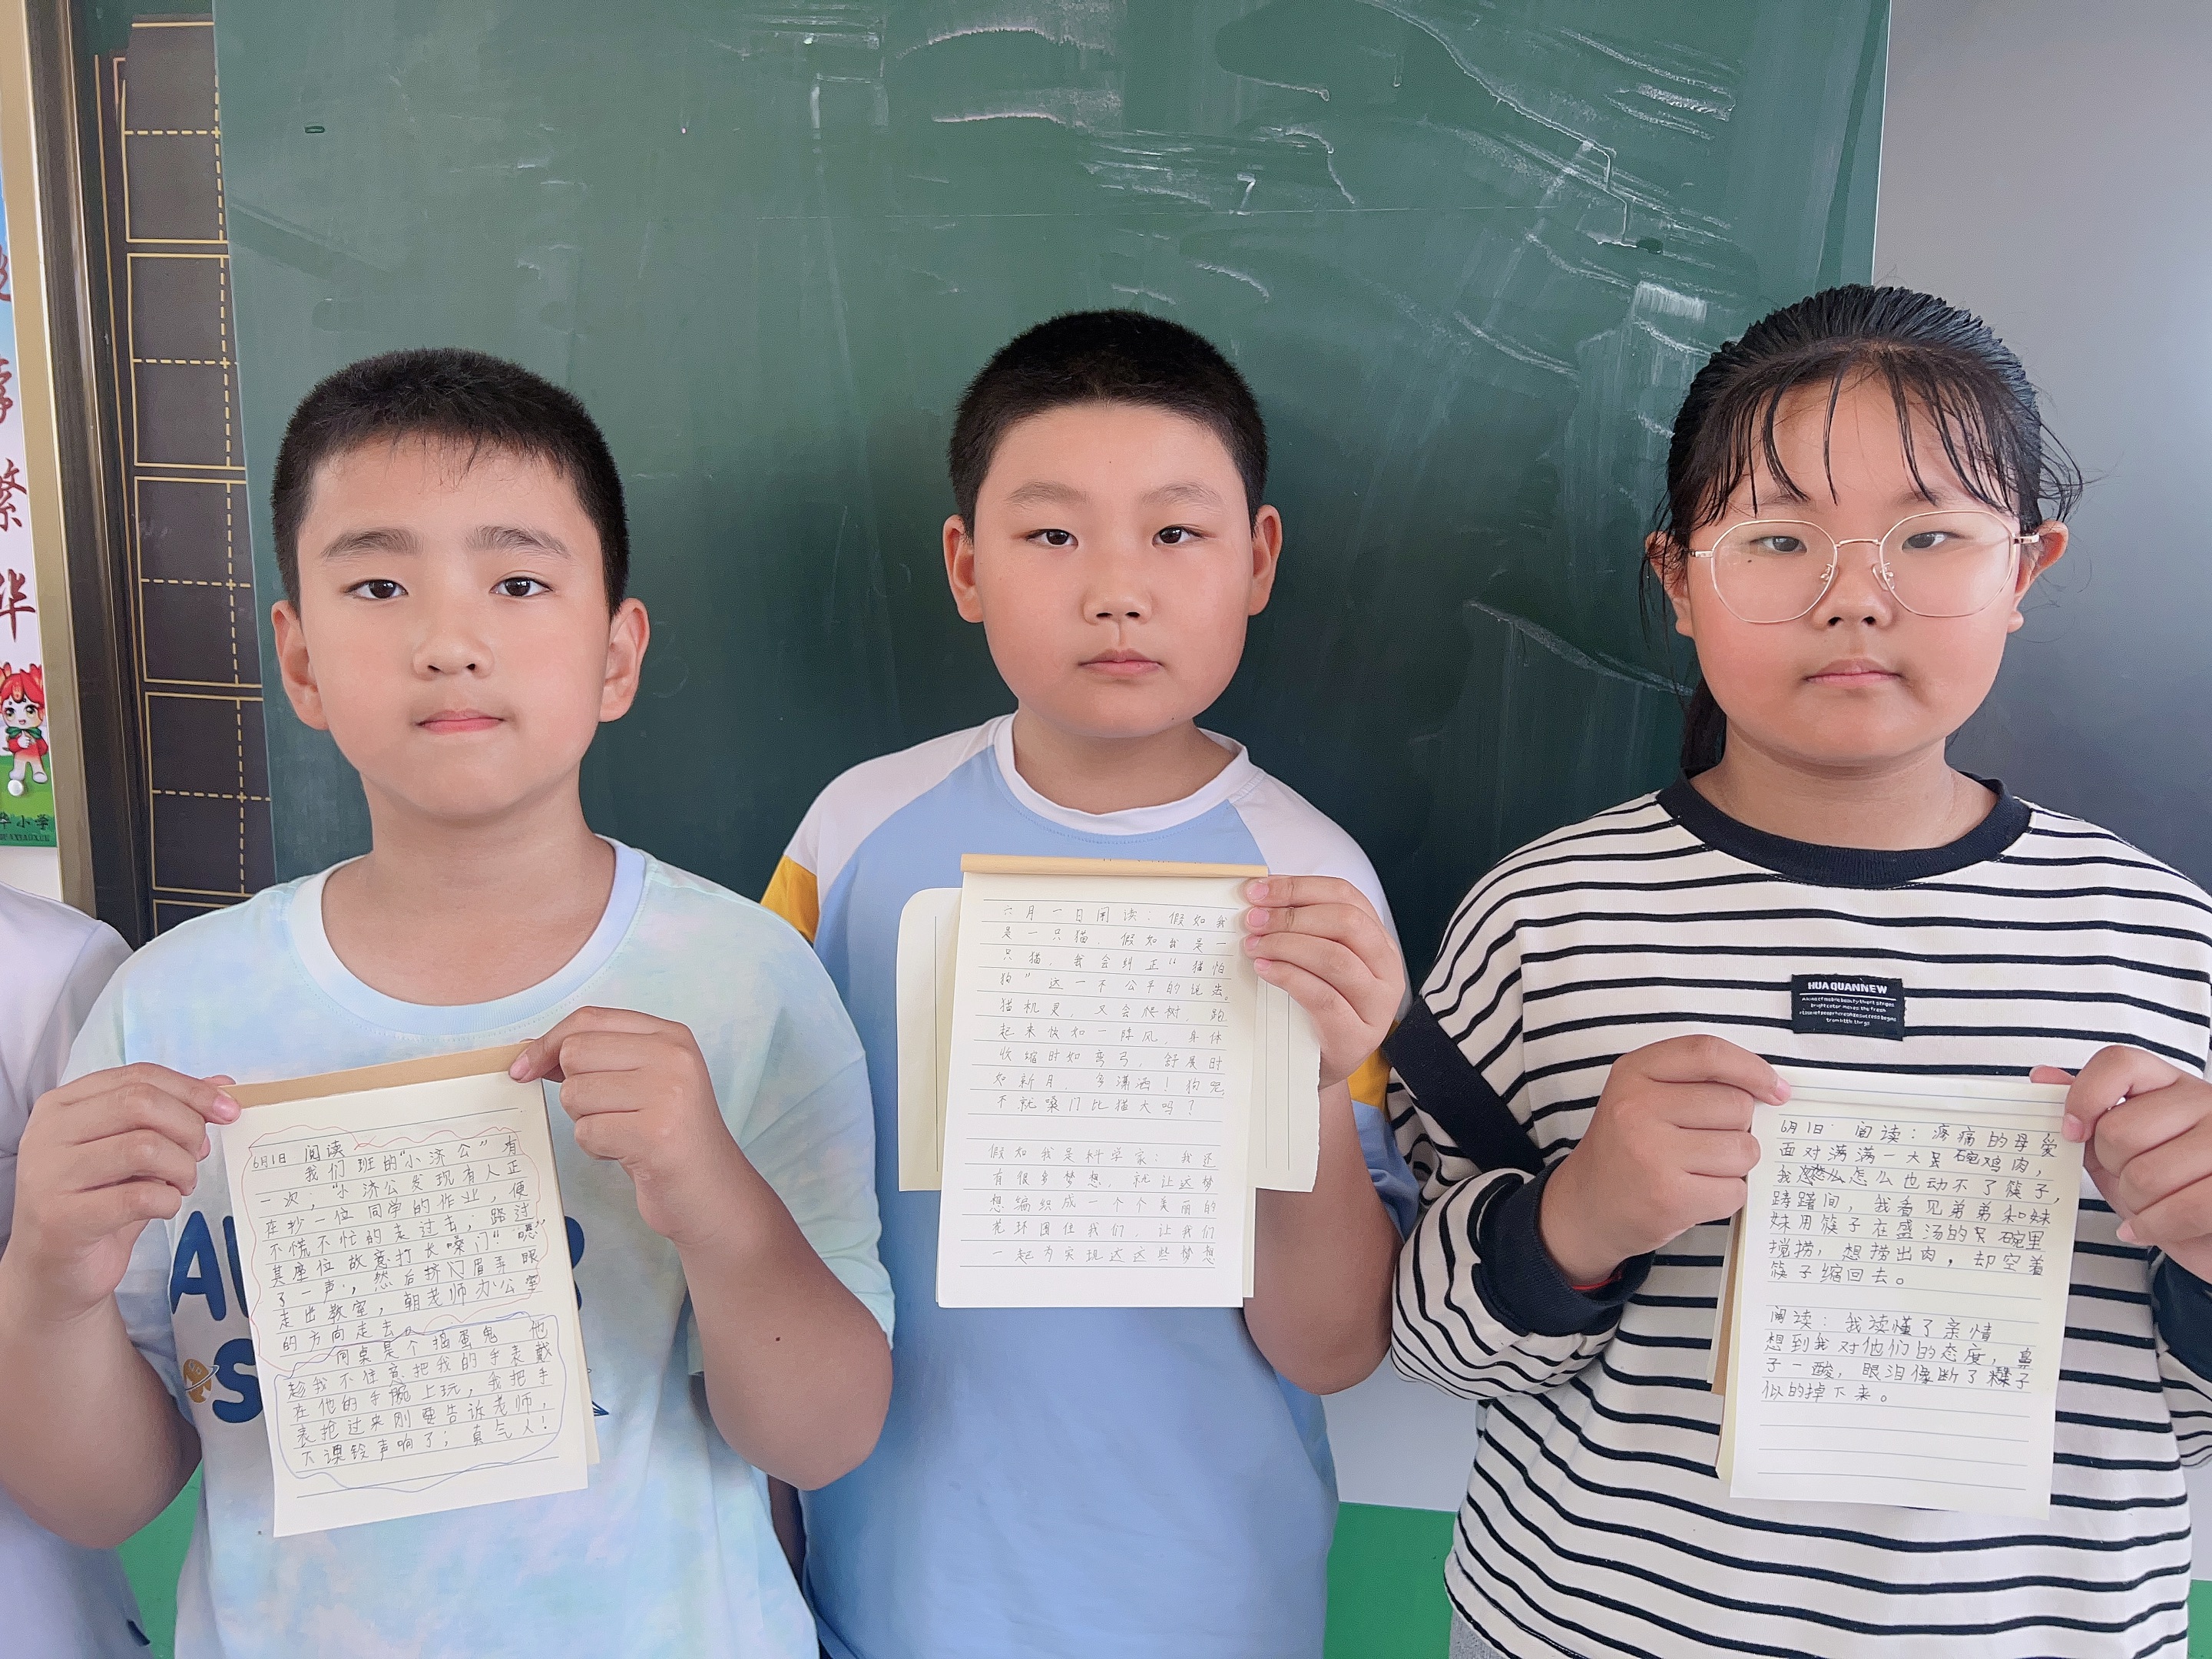 繁
华
华小学
7
6月1日 阅读
我们班的“小济公”有
一次,“小济公发现有人正
在抄一位同学的作业,便
不慌不忙的走过去,路过
其座位故意打长嗓门“嗯”
了一声,然后挤闪眉弄眼
走出教室,朝老师办公室
的方向走去。
同桌是个捣蛋鬼 他
趁我不住意把我的手表戴
在他的手腕上玩,我把手
表抢过来刚要告诉老师,
大课铃声响了;真气人!
六月一日阅读:假如我
是一只猫.假如我是一
只猫.我会纠正“猫怕
狗”这一不公平的说法。
猫机灵,又会爬树.跑
起来快如一阵风.身体
收缩时如弯弓.舒展时
如新月.多潇洒!狗呢,
不就嗓门比猫大吗?
假如我是科学家:我还
有很多梦想,就让这梦
想编织成一个个美丽的
花环围住我们.让我们
一起为实现这这些梦想
HUAQUANNEW
6月1日:阅读:疼痛的母爱
面对满满一大碗鸡肉,
我怎么怎么也动不了筷子,
踌躇间,我看见弟弟和妹
妹用筷子在盛汤的碗里
搅捞,想捞出肉,却空着
筷子缩回去。
阅读:我读懂了亲情
想到我对他们的态度,鼻
子一酸,眼泪像断了子
似的掉下来。